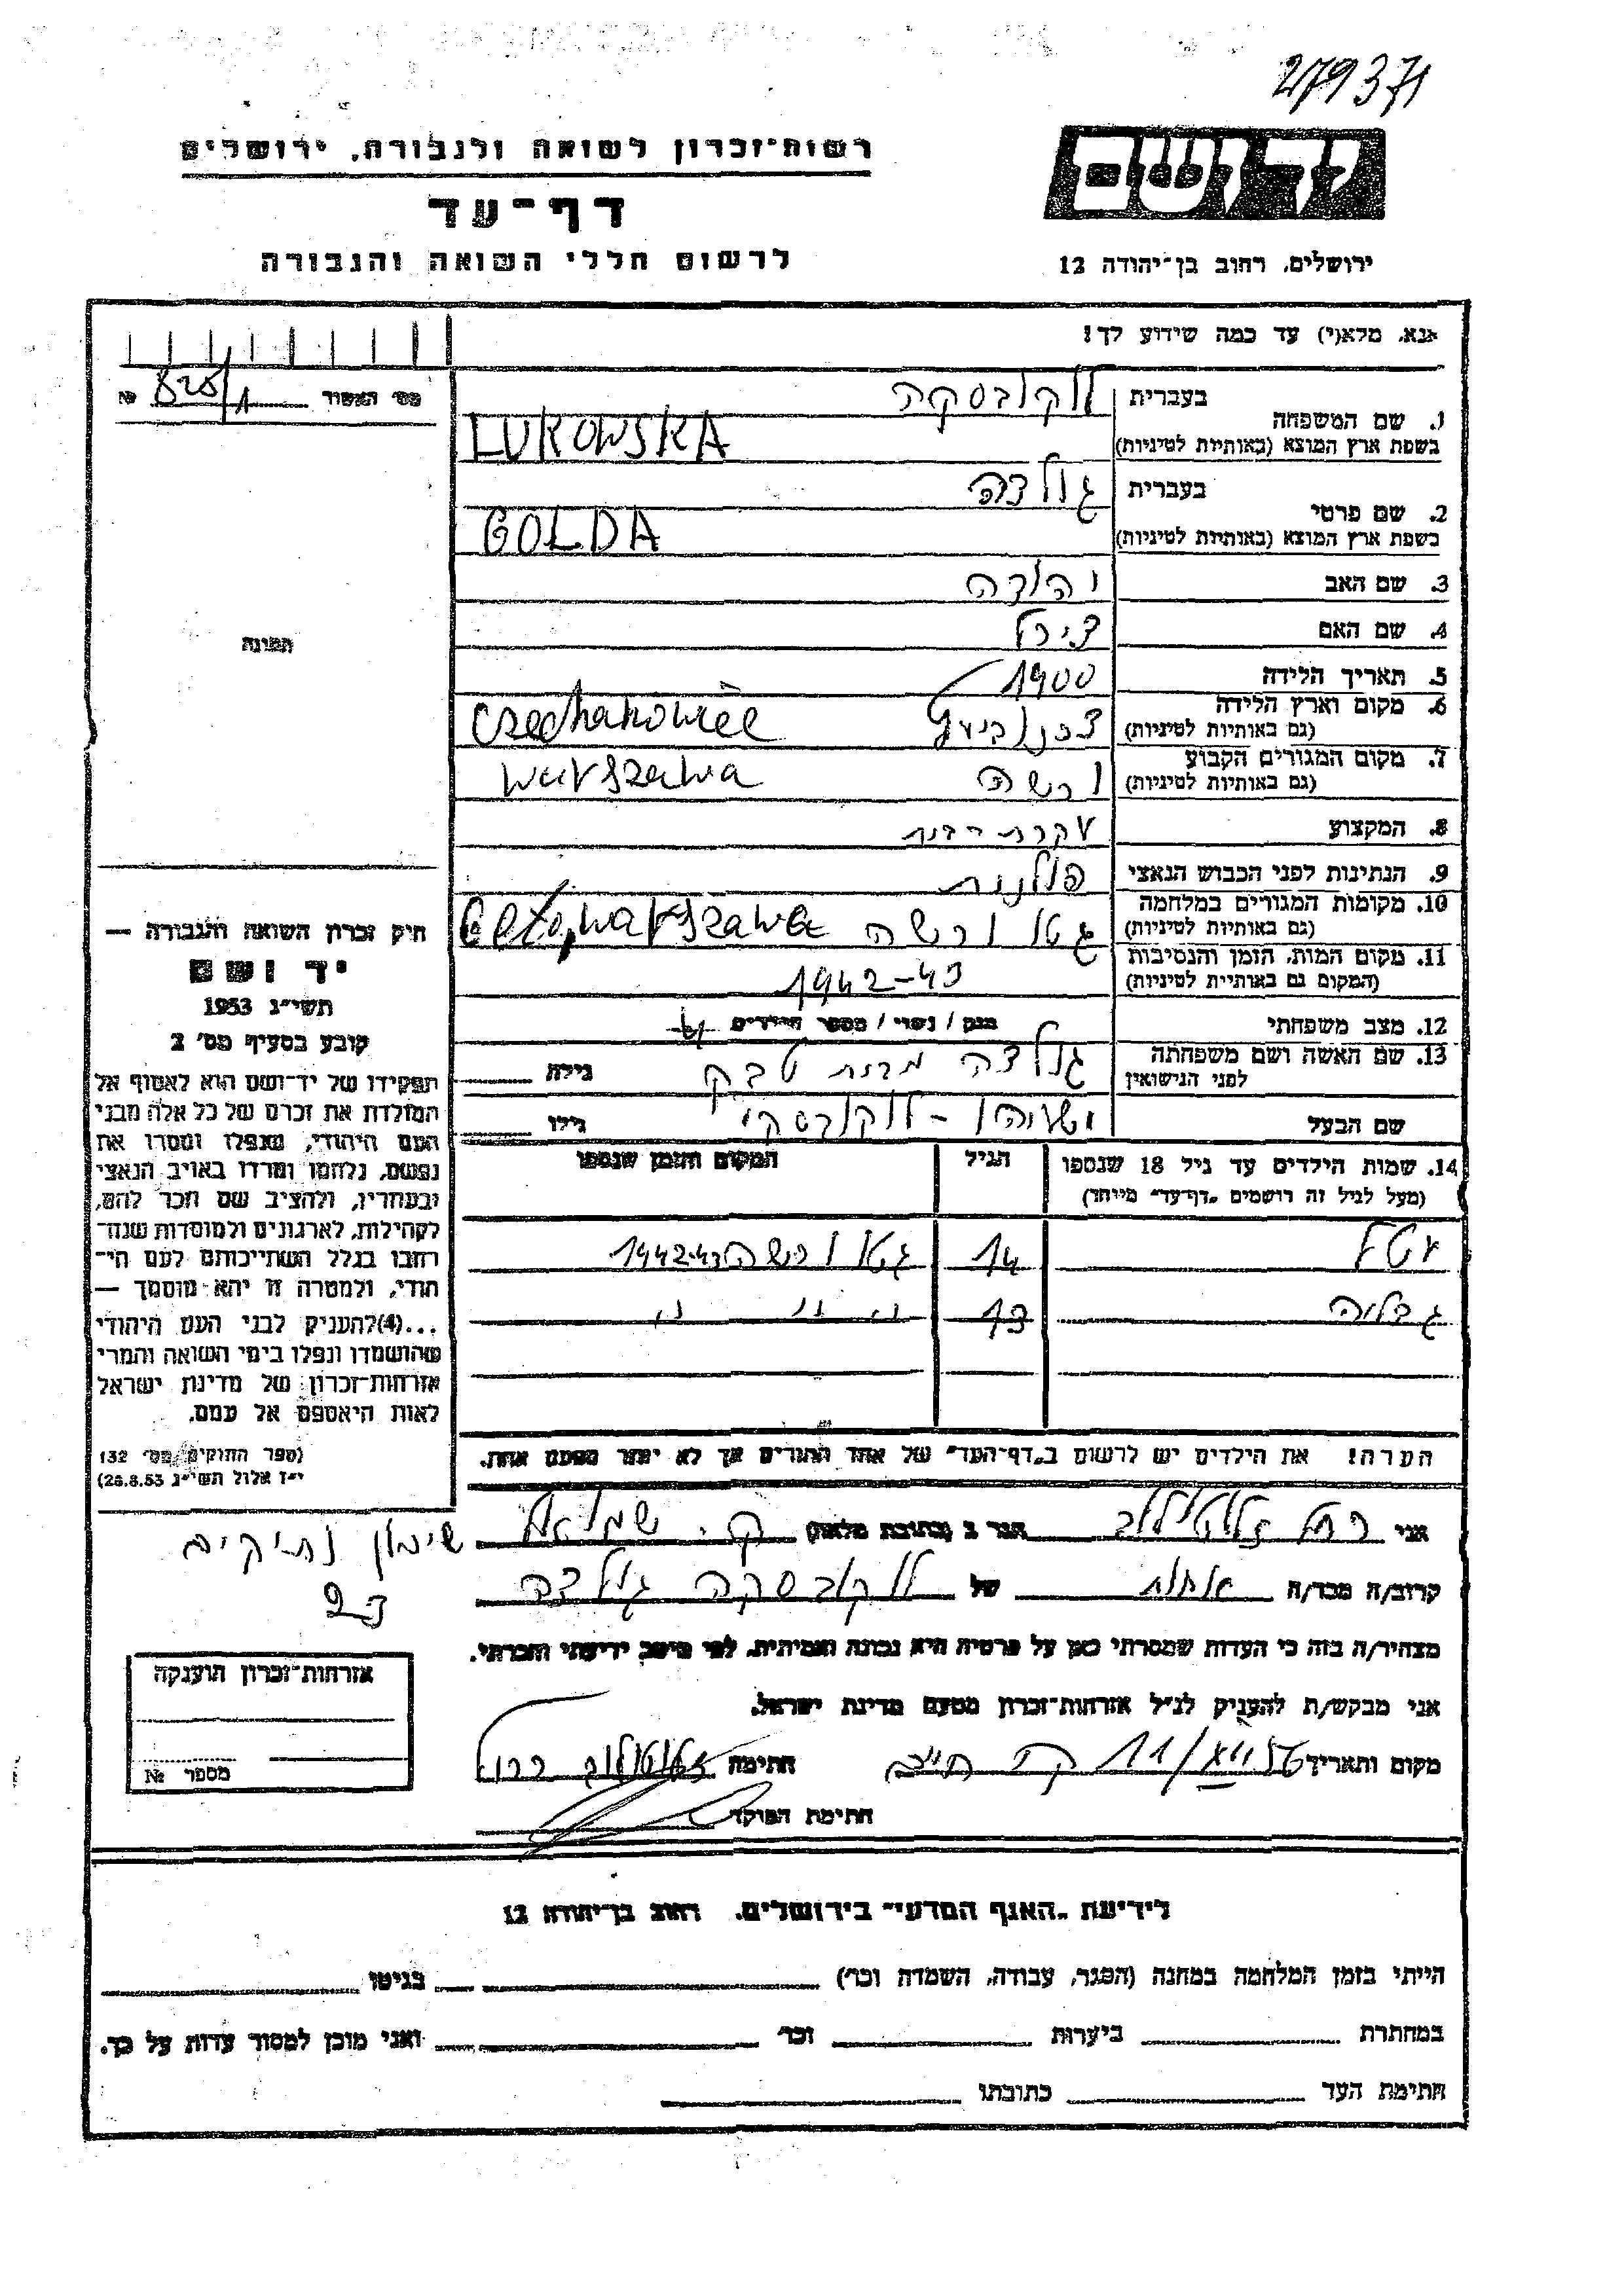 279371
רשות־זכרון לשואה ולגבורה, ירושלים
דף־עד
לרשום חללי השואה והגבורה
יד ושם
ירושלים, רחוב בן־יהודה 12
אנא, מלא(י) עד כמה שידוע לך!
מס׳ האשור 828/1 №
1. שם המשפחה בעברית לוקובסקה
בשפת ארץ המוצא (באותיות לטיניות) LUKOWSKA
2. שם פרטי בעברית גולדה
בשפת ארץ המוצא (באותיות לטיניות) GOLDA
3. שם האב יהודה
4. שם האם
5. תאריך הלידה 1900
6. מקום וארץ הלידה
(גם באותיות לטיניות) Czechanowiec
7. מקום המגורים הקבוע ורשה
(גם באותיות לטיניות) Warszawa
8. המקצוע עקרת בית
9. הנתינות לפני הכבוש הנאצי פולנית
10. מקומות המגורים במלחמה גטו ורשה
(גם באותיות לטיניות) Getto, Warszawa
11. מקום המות, הזמן והנסיבות 1942-43
(המקום גם באותיות לטיניות)
12. מצב משפחתי / נשוי / מספר הילדים
13. שם האשה ושם משפחתה גולדה מבית
לפני הנישואין גילה
שם הבעל ישעיהו - לוקובסקי גילו
14. שמות הילדים עד גיל 18 שנספו הגיל המקום והזמן שנספו
(מעל לגיל זה רושמים "דף־עד" מיוחד)
14 גטו ורשה 1942-43
גבלוה 13 " " "
הערה! את הילדים יש לרשום ב"דף־העד" של אחד ההורים אך לא יותר מפעם אחת.
תמונה
חוק זכרון השואה והגבורה —
יד ושם
תשי״ג 1953
קובע בסעיף מס׳ 2
תפקידו של יד־ושם הוא לאסוף אל
המולדת את זכרם של כל אלה מבני
העם היהודי, שנפלו ומסרו את
נפשם, נלחמו ומרדו באויב הנאצי
ובעוזריו, ולהציב שם וזכר להם,
לקהילות, לארגונים ולמוסדות שנח־
רבו בגלל השתייכותם לעם הי־
הודי, ולמטרה זו יהא מוסמך —
...(4) להעניק לבני העם היהודי
שהושמדו ונפלו בימי השואה והמרי
אזרחות־זכרון של מדינת ישראל
לאות היאספם אל עמם.
(ספר החוקים מס׳ 132
י״ז אלול תשי״ג 28.8.53)
אני רחל זלוטולוב הגר ב (כתובת מלאה) ק. שמואל
23
קרוב/ה מכר/ה אחות של לוקובסקה גולדה
מצהיר/ה בזה כי העדות שמסרתי כאן על פרטיה היא נכונה ואמיתית, לפי מיטב ידיעתי והכרתי.
אני מבקש/ת להעניק לנ״ל אזרחות־זכרון מטעם מדינת ישראל.
מקום ותאריך ק. חיים חתימה
חתימת הפוקד
אזרחות־זכרון הוענקה
מספר №
לידיעת "האגף המדעי" בירושלים, רחוב בן־יהודה 12
הייתי בזמן המלחמה במחנה (הסגר, עבודה, השמדה וכו׳) בגיטו
במחתרת ביערות וכו׳ ואני מוכן למסור עדות על כך.
חתימת העד כתובתו